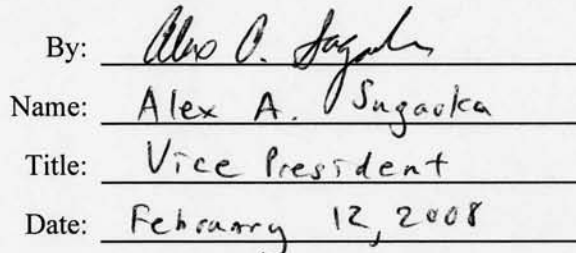 By: Alex A.
Name: Alex A. Sugaoka
Title: Vice President
Date: February 12, 2008